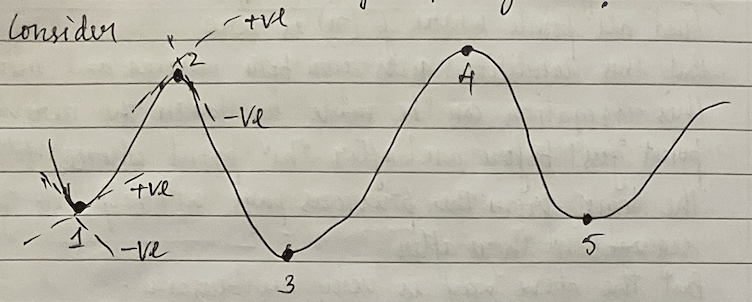 Consider
+ve
2
4
-ve
+ve
1
-ve
5
3